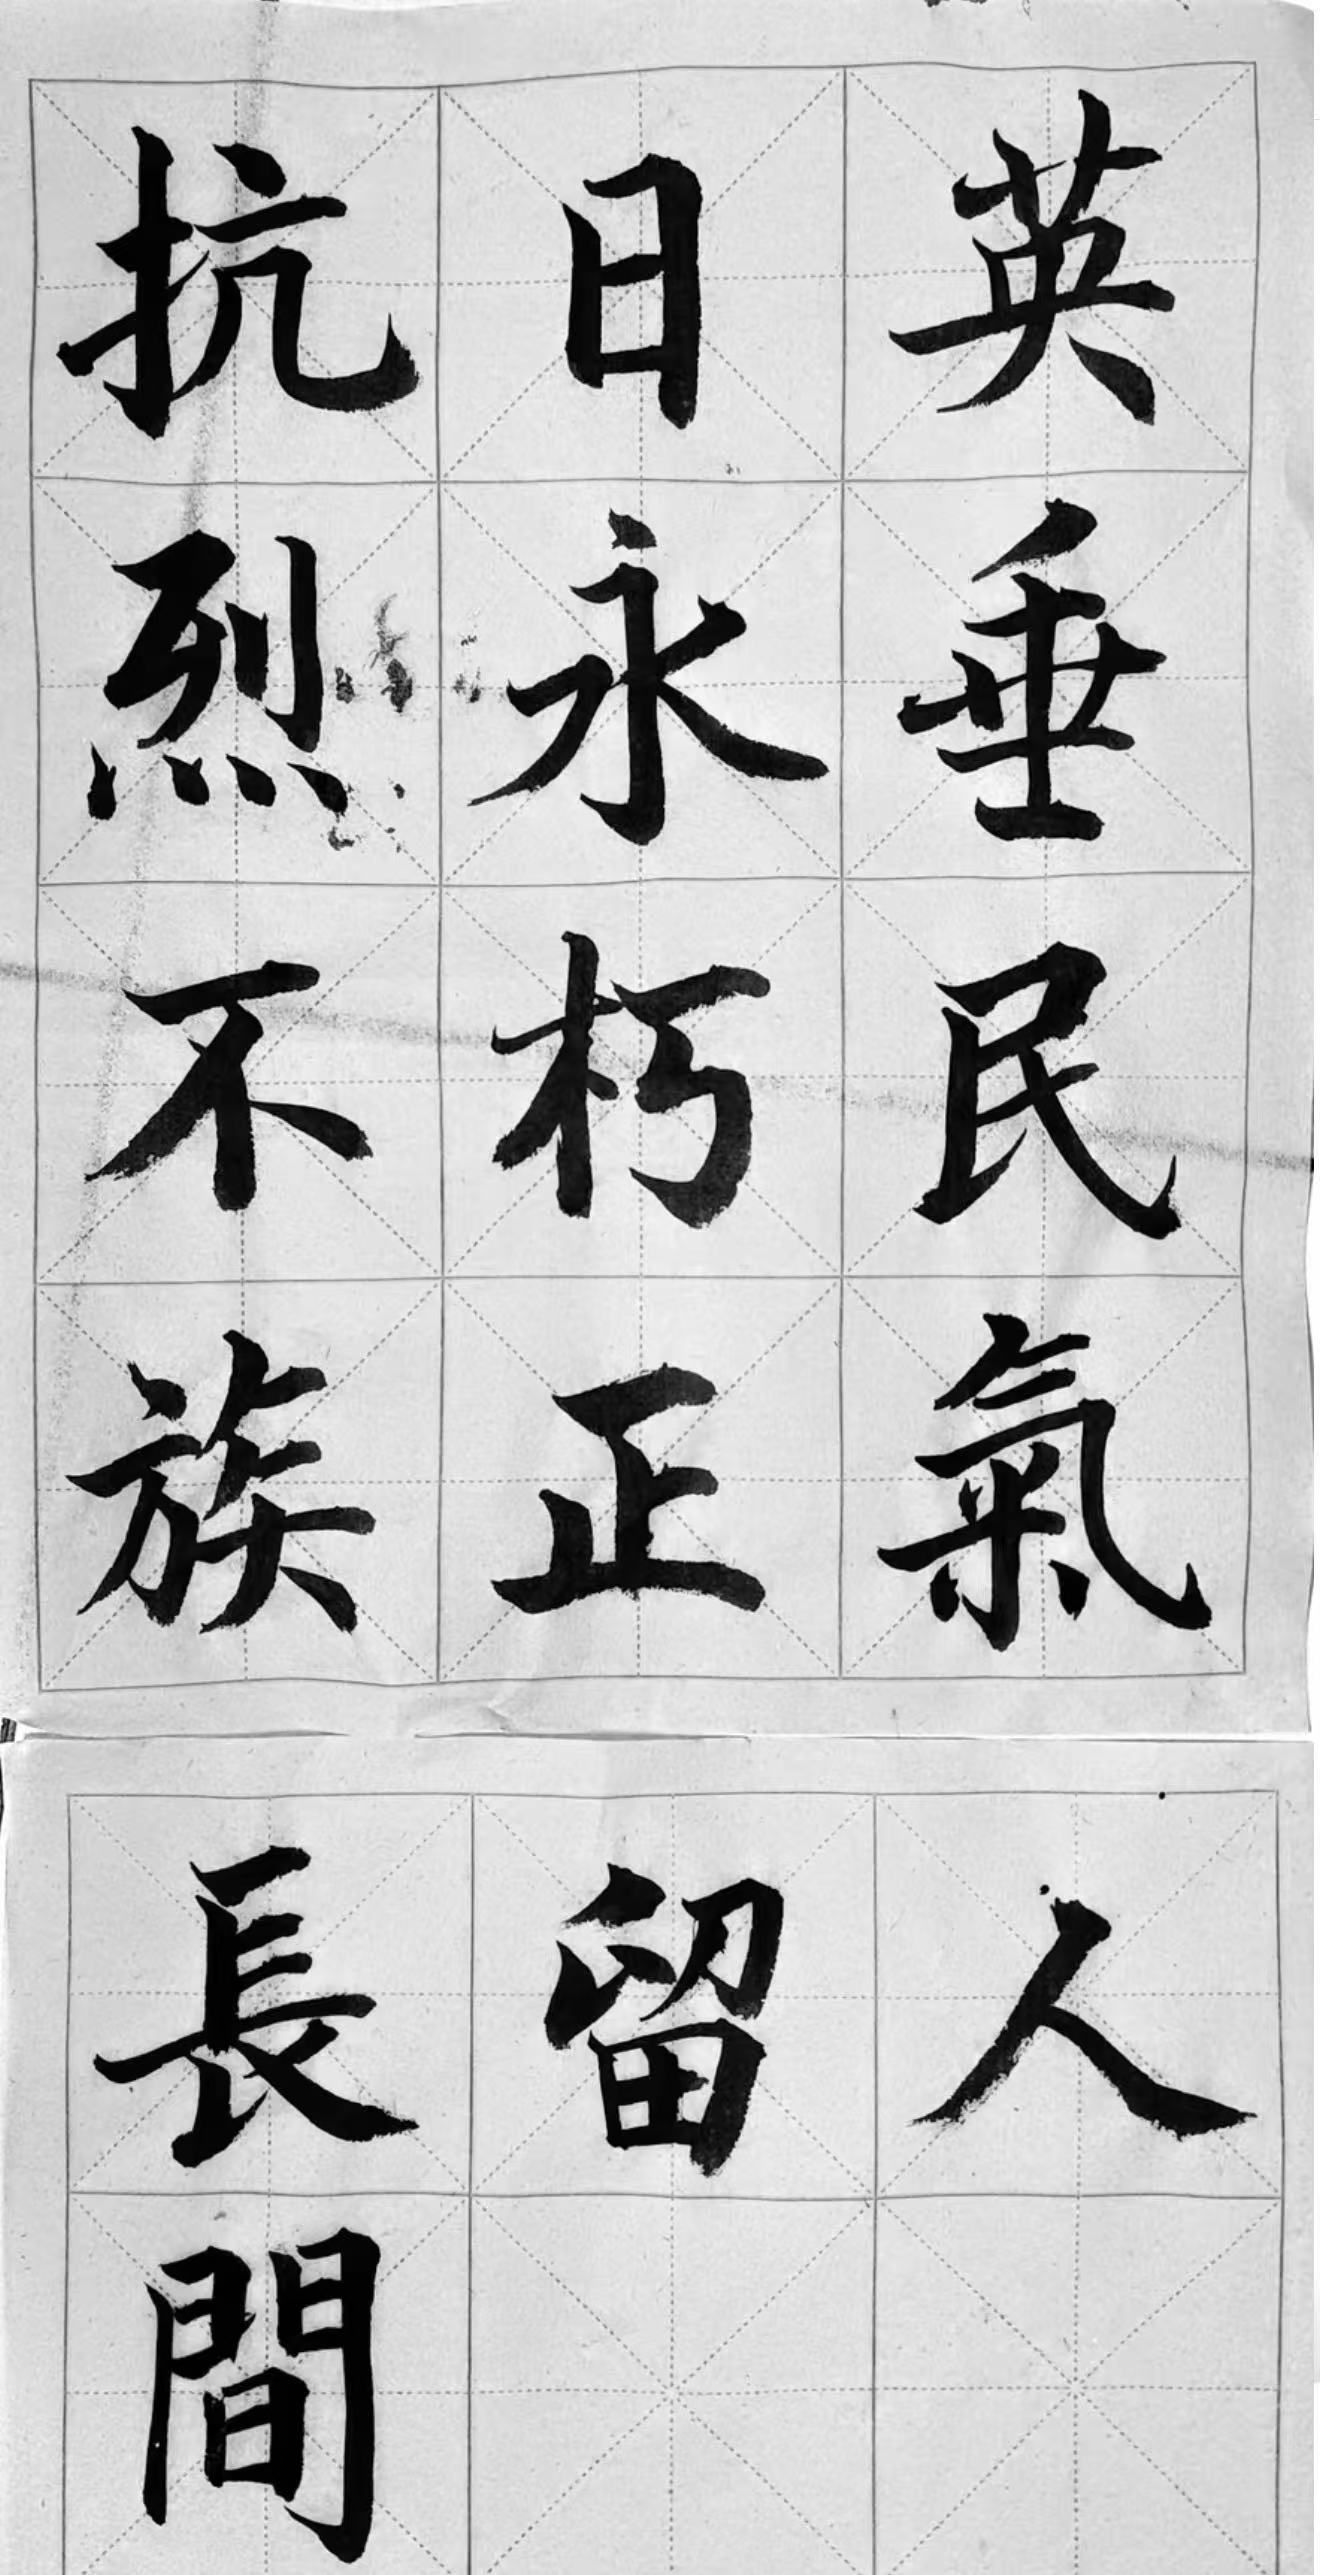 抗日英
烈永垂
不朽民
族正氣
長留人
間